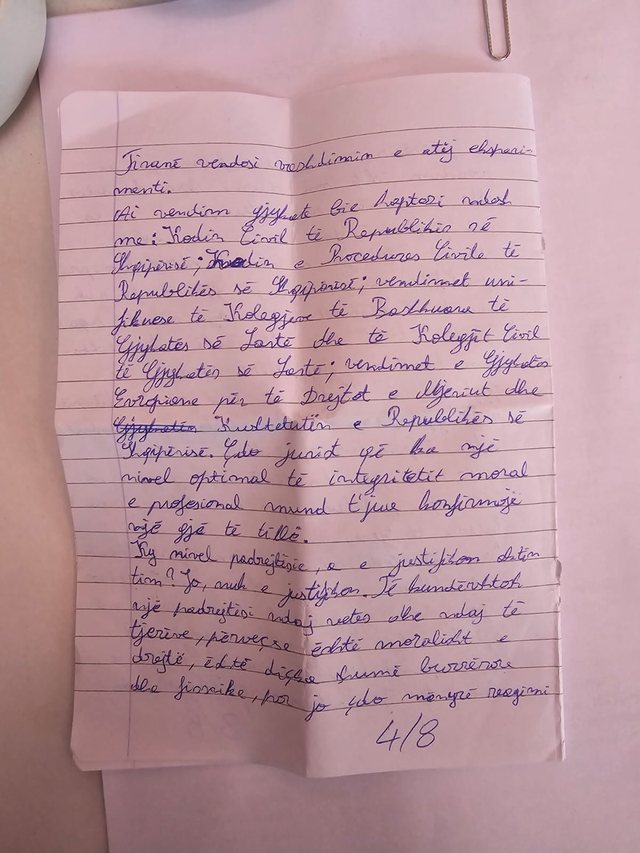 Tiranë vendosi vazhdimin e atij ekspari-
menti.
Ai vendim gjyqate bie haptazi ndesh
me: Kodin Civil të Republikës së
Shqipërisë; Kodin e Procedures Civile të
Republikës së Shqipërisë; vendimet uni-
fikuese të Kolegjeve të Bashkuara të
Gjykatës së Lartë dhe të Kolegjit Civil
të Gjykatës së Lartë; vendimet e Gjykatës
Evropiane për të Drejtat e Njeriut dhe
Gjykatën Kushtetutën e Republikës së
Shqipërisë. Çdo jurist që ka një
nivel optimal të integritetit moral
e profesional mund t'jua konfirmojë
një gjë të tillë.
Ky nivel padrejtësie, a e justifikon aktin
tim? Jo, nuk e justifikon. Të kundërshtosh
një padrejtësi ndaj vetes dhe ndaj të
tjerëve, përveçse është moralisht e
drejtë, është diçka shumë burrërore
dhe fisnike, por jo çdo mënyrë reagimi
4/8